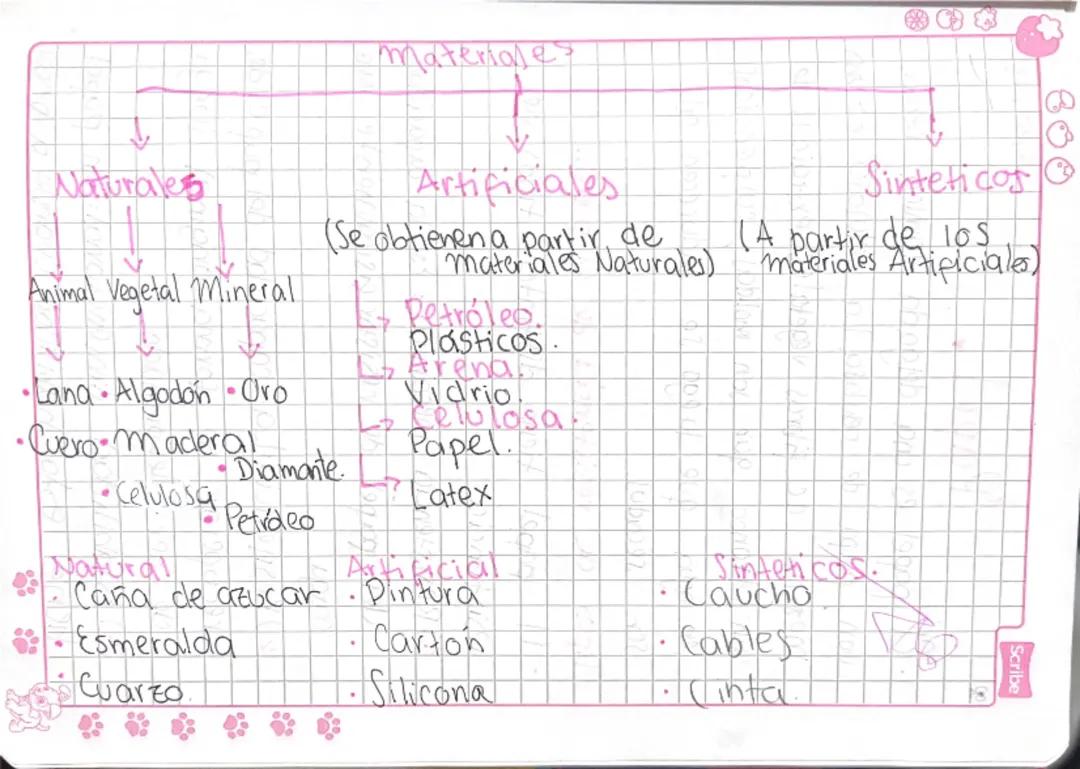 Materiales
Naturales
Artificiales
Sinteticos
(Se obtienen a partir de
materiales Naturales)
(A partir de los
materiales Artificiales)
Animal Vegetal Mineral
Petróleo.
Plásticos.
Arena.
Vidrio.
Celulosa.
Papel.
Latex
• Lana • Algodón • Oro
• Cuero • Maderal
• Diamante.
• Celulosa
• Petróleo
Natural
Artificial
Sinteticos.
• Caña de azucar
• Pintura
• Caucho
• Esmeralda
• Cartón
• Cables
• Cuarzo.
• Silicona
• Cinta.
Scribe